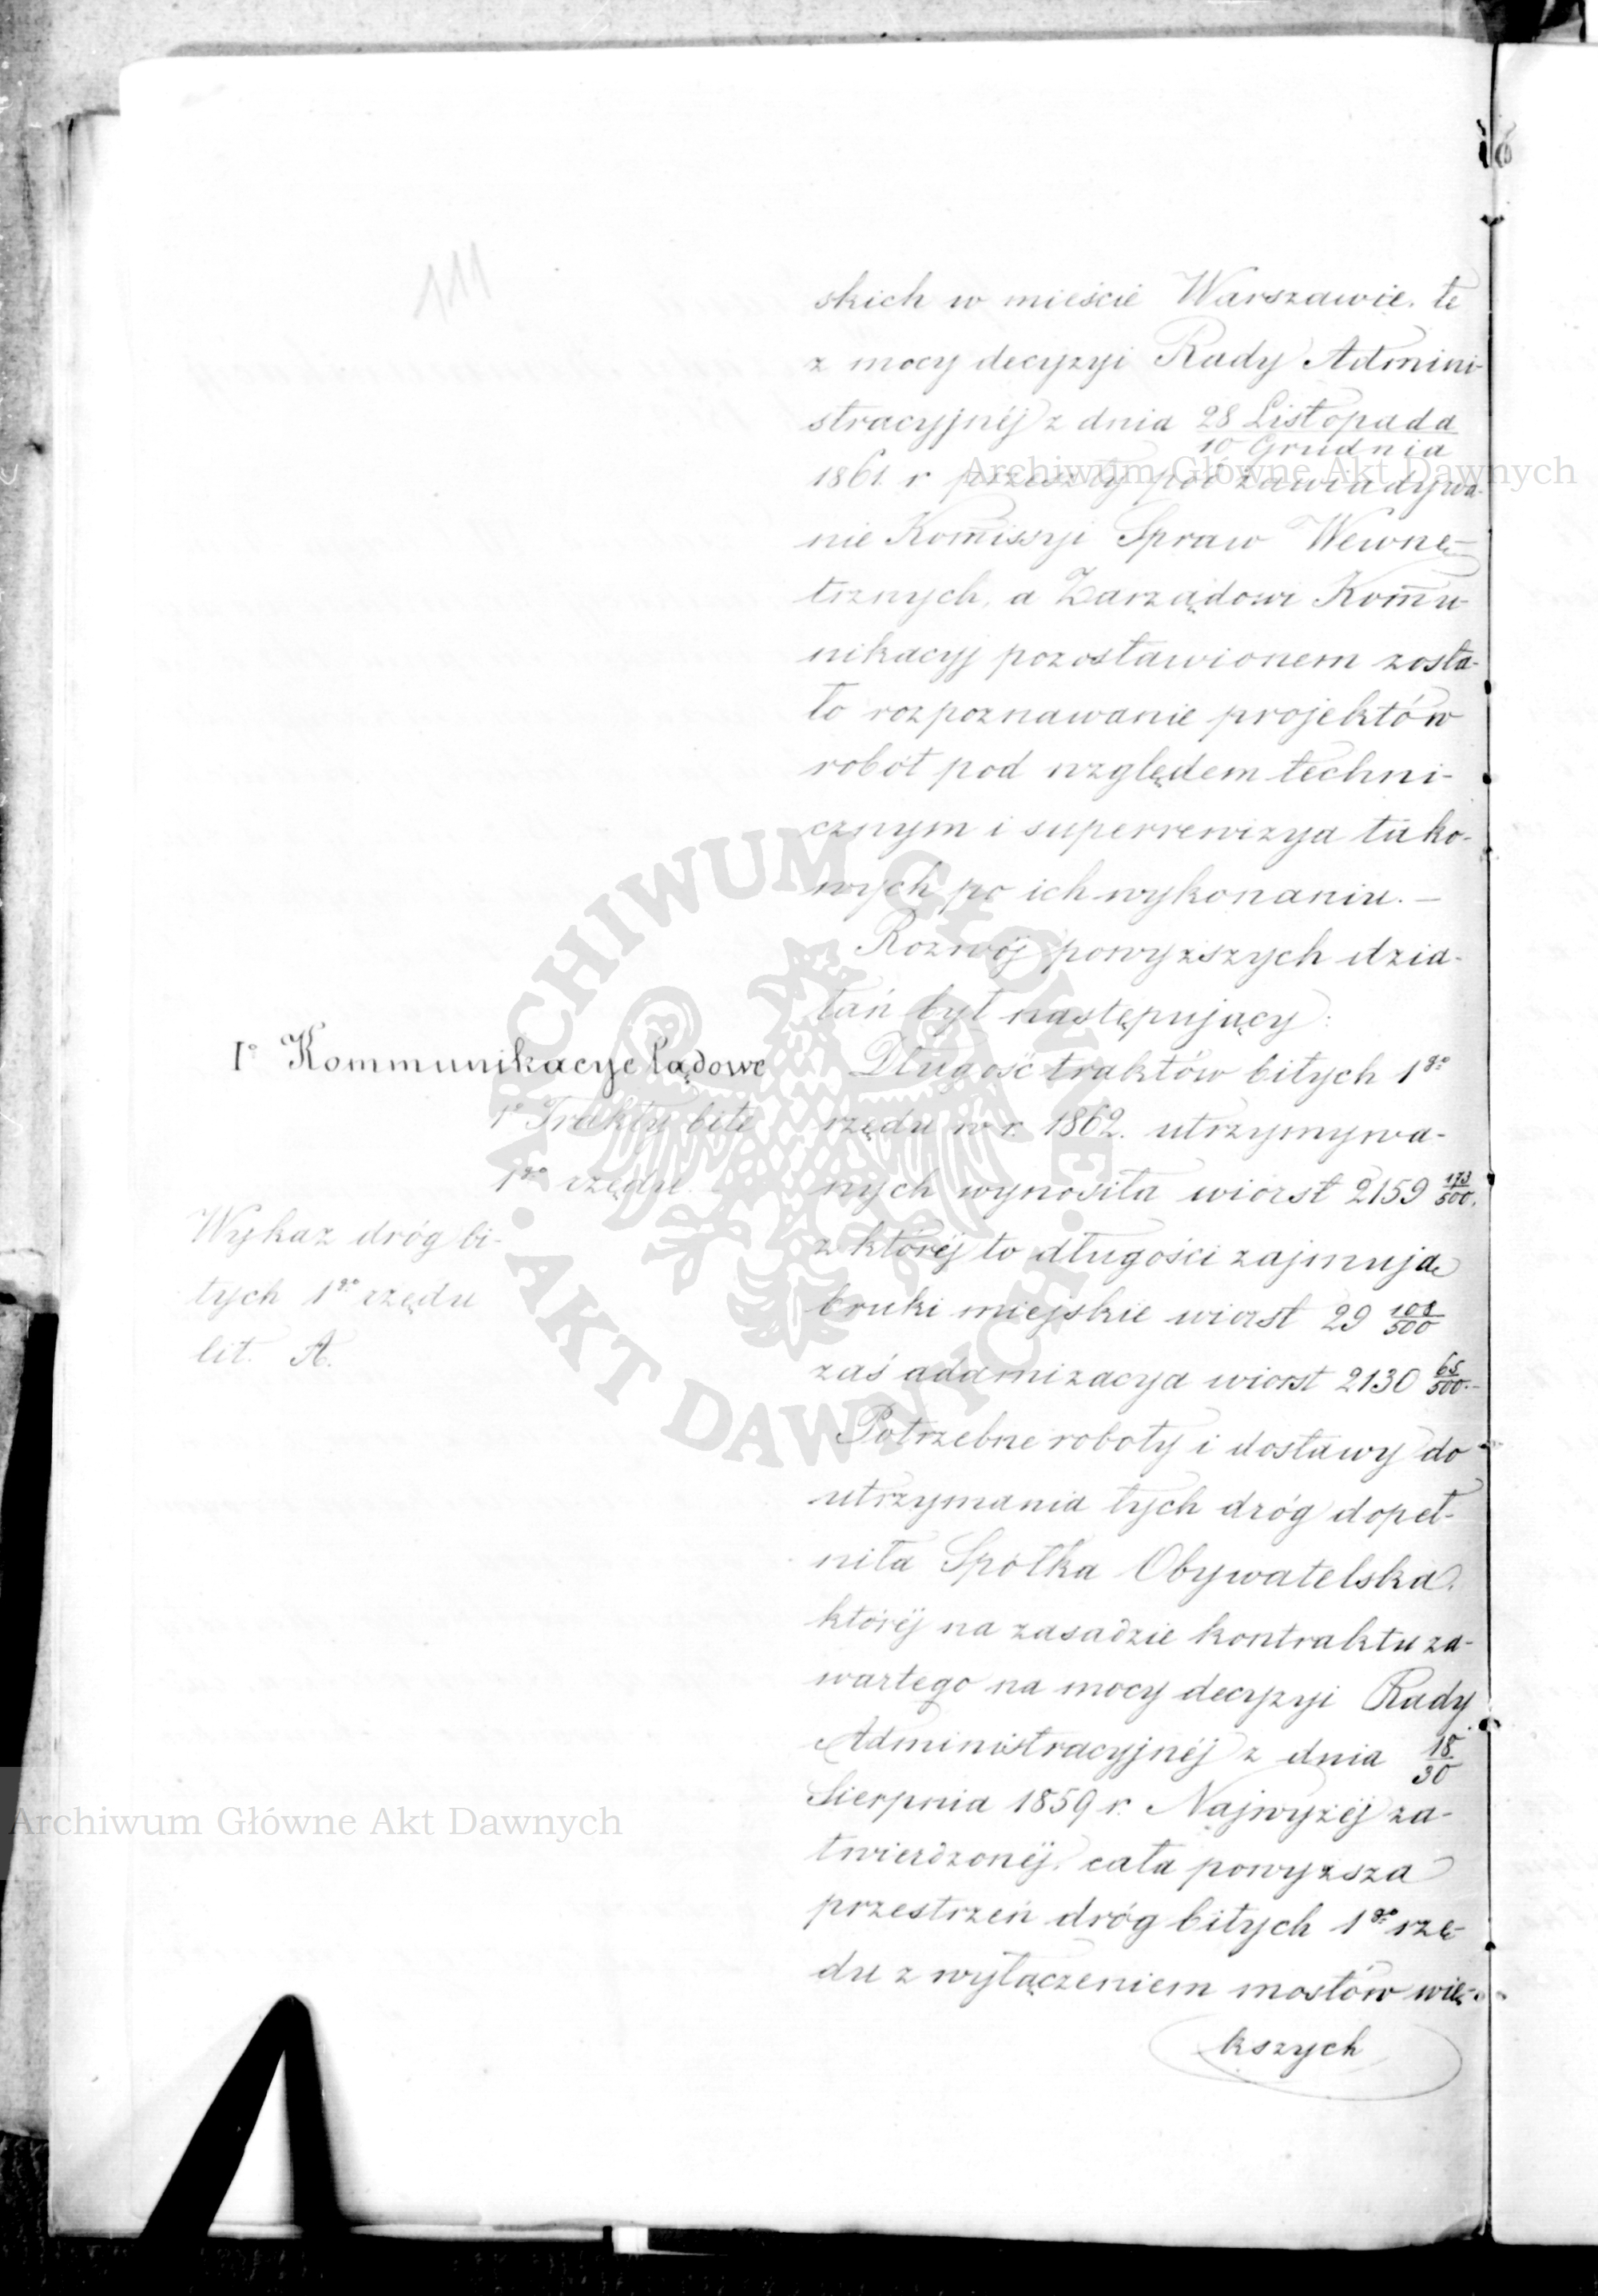 111
skich w mieście Warszawie, te
z mocy decyzyi Rady Admini-
stracyjnéj z dnia 28 Listopada
10 Grudnia
1861 r przeszły pod zawiadywa-
nie Kom̄issyi Spraw Wewnę-
trznych, a Zarządowi Kom̄u-
nikacyj pozostawionem zosta-
ło rozpoznawanie projektów
robót pod względem techni-
cznym i superrewizya tako-
wych po ich wykonaniu. —
Rozwój powyższych dzia-
łań był następujący:
I° Kommunikacye lądowe
1° Trakty bite
1go rzędu.
Wykaz dróg bi-
tych 1go rzędu
lit. A.
Długość traktów bitych 1go
rzędu w r. 1862. utrzymywa-
nych wynosiła wiorst 2159 173/500,
z któréj to długości zajmują
bruki miejskie wiorst 29 108/500
zaś adamizacya wiorst 2130 65/500.-
Potrzebne roboty i dostawy do
utrzymania tych dróg dopeł-
niła Spółka Obywatelska,
któréj na zasadzie kontraktu za-
wartego na mocy decyzyi Rady
Administracyjnéj z dnia 18/30
Sierpnia 1859 r. Najwyżéj za-
twierdzonéj, cała powyższa
przestrzeń dróg bitych 1go rzę-
du z wyłączeniem mostów wię-
kszych
Archiwum Główne Akt Dawnych
ARCHIWUM GŁÓWNE · AKT DAWNYCH ·
Archiwum Główne Akt Dawnych